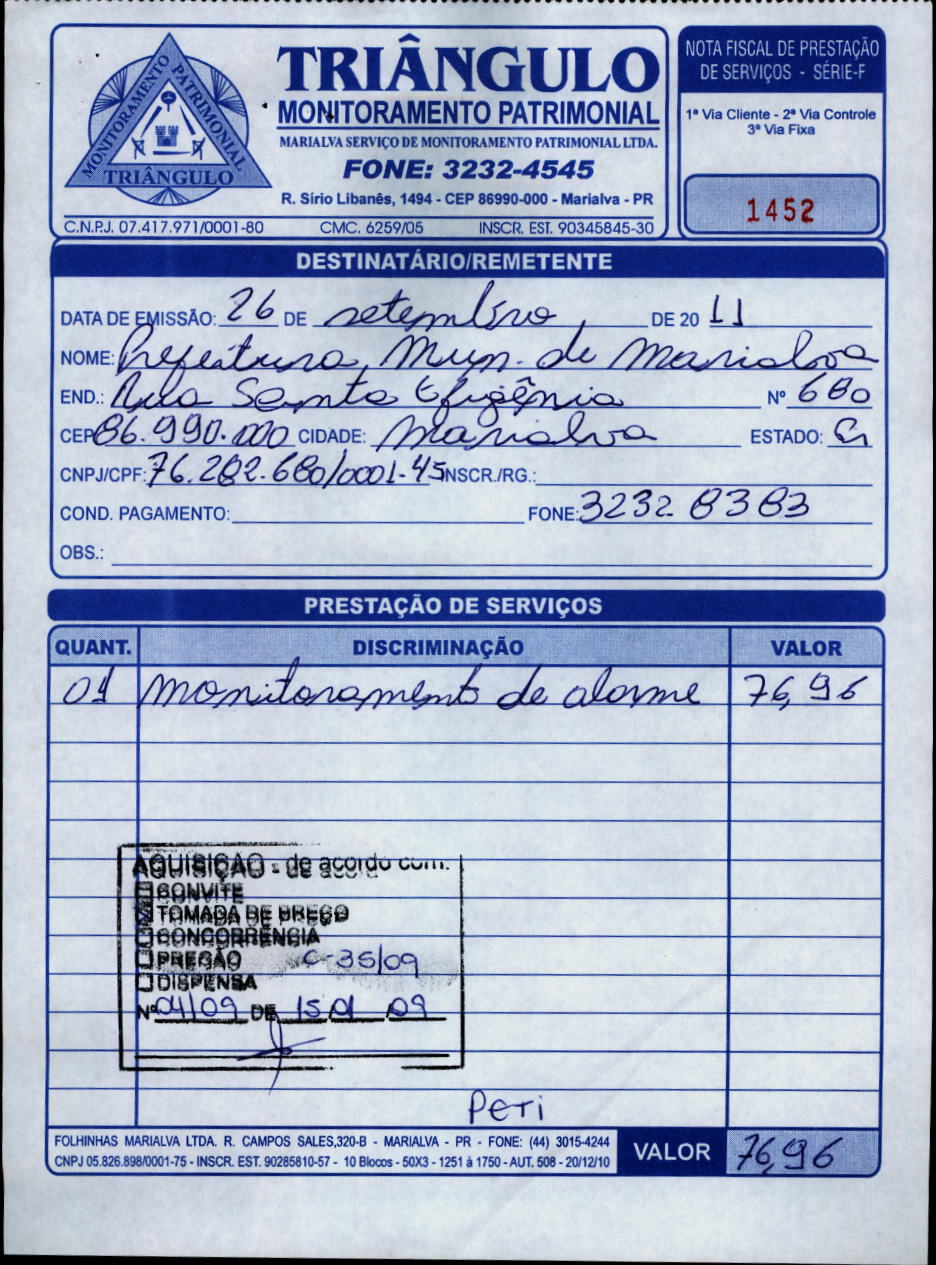 MONITORAMENTO PATRIMONIAL
TRIÂNGULO
TRIÂNGULO
MONITORAMENTO PATRIMONIAL
MARIALVA SERVIÇO DE MONITORAMENTO PATRIMONIAL LTDA.
FONE: 3232-4545
R. Sírio Libanês, 1494 - CEP 86990-000 - Marialva - PR
C.N.P.J. 07.417.971/0001-80 CMC. 6259/05 INSCR. EST. 90345845-30
NOTA FISCAL DE PRESTAÇÃO
DE SERVIÇOS - SÉRIE-F
1ª Via Cliente - 2ª Via Controle
3ª Via Fixa
1452
DESTINATÁRIO/REMETENTE
DATA DE EMISSÃO: 26 DE setembro DE 20 11
NOME: Prefeitura Mun. de Marialva
END.: Rua Santa Efigênia Nº 680
CEP 86.990.000 CIDADE: Marialva ESTADO:
CNPJ/CPF: 76.282.680/0001-45 INSCR./RG.:
COND. PAGAMENTO: FONE: 3232 8383
OBS.:
PRESTAÇÃO DE SERVIÇOS
QUANT. DISCRIMINAÇÃO VALOR
01 monitoramento de alarme 76,96
AQUISIÇÃO - de acordo com:
CONVITE
TOMADA DE PREÇO
CONCORRÊNCIA
PREGÃO C-35/09
DISPENSA
Nº 04/09 DE 15 01 09
PETI
FOLHINHAS MARIALVA LTDA. R. CAMPOS SALES,320-B - MARIALVA - PR - FONE: (44) 3015-4244
CNPJ 05.826.898/0001-75 - INSCR. EST. 90285810-57 - 10 Blocos - 50X3 - 1251 à 1750 - AUT. 508 - 20/12/10
VALOR 76,96